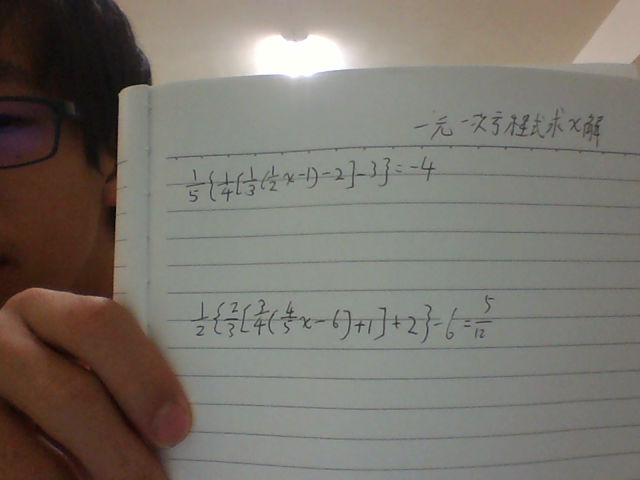 一元一次方程式求x解
1/5{1/4[1/3(1/2x-1)-2]-3}=-4
1/2{2/3[3/4(4/5x-6)+1]+2}-6=5/12